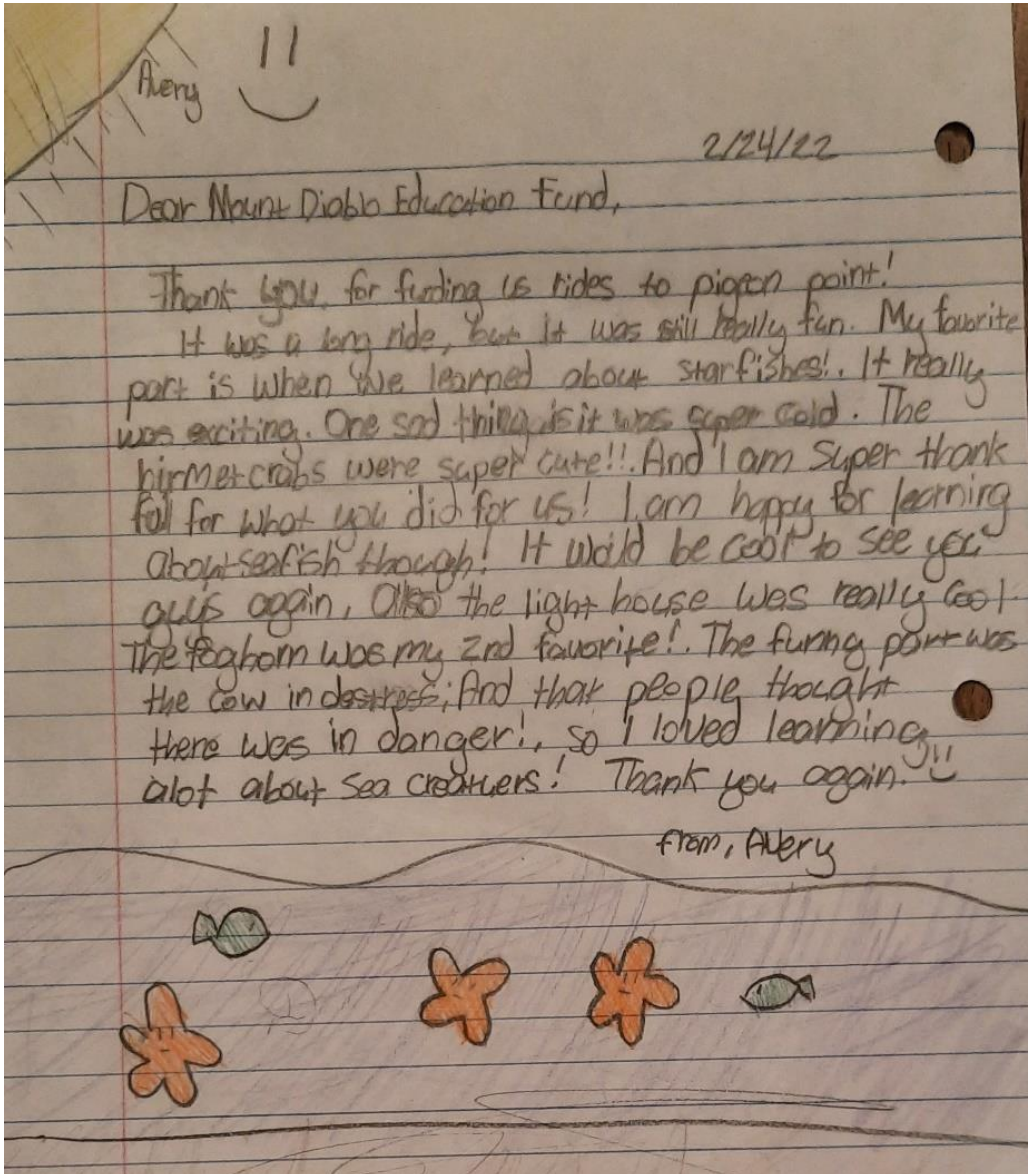 Avery
2/24/22
Dear Mount Diablo Education Fund,
Thank you for funding us rides to pigeon point!
It was a long ride, but it was still really fun. My favorite
part is when we learned about starfishes!. It really
was exciting. One sad thing is it was super cold. The
hirmet crabs were super cute!!. And I am super thank
full for what you did for us! I am happy for learning
about seafish though! It would be cool to see you
guys again, also the light house was really cool.
The foghorn was my 2nd favorite!. The funny part was
the cow in destress; And that people thought
there was in danger!, so I loved learning
alot about sea creatuers! Thank you again!
from, Avery